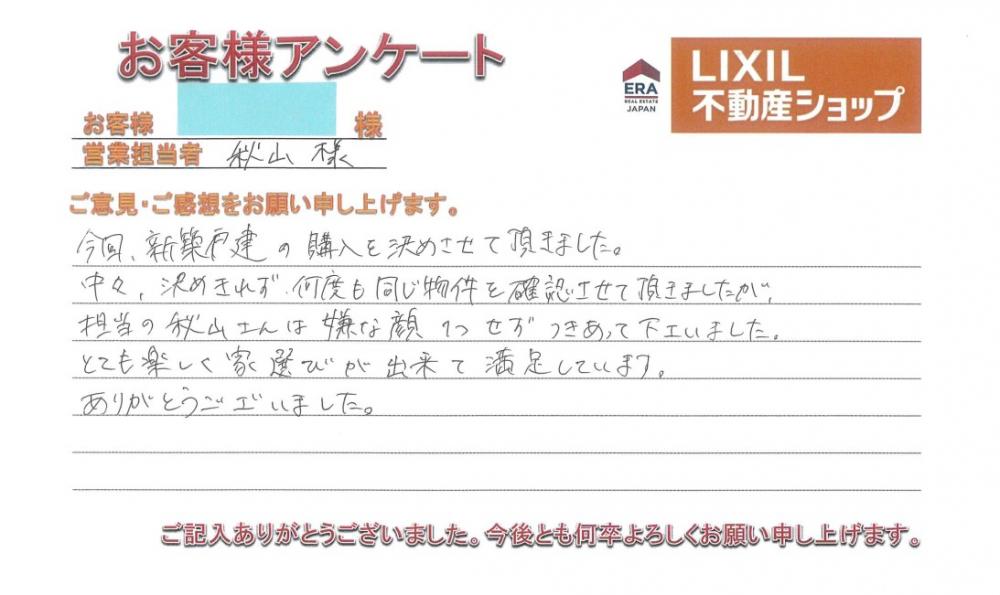 お客様アンケート
ERA
REAL ESTATE
JAPAN
LIXIL
不動産ショップ
お客様 様
営業担当者 秋山 様
ご意見・ご感想をお願い申し上げます。
今回、新築戸建の購入を決めさせて頂きました。
中々、決めきれず、何度も同じ物件を確認させて頂きましたが、
担当の秋山さんは嫌な顔1つせずつきあって下さいました。
とても楽しく家選びが出来て満足しています。
ありがとうございました。
ご記入ありがとうございました。今後とも何卒よろしくお願い申し上げます。